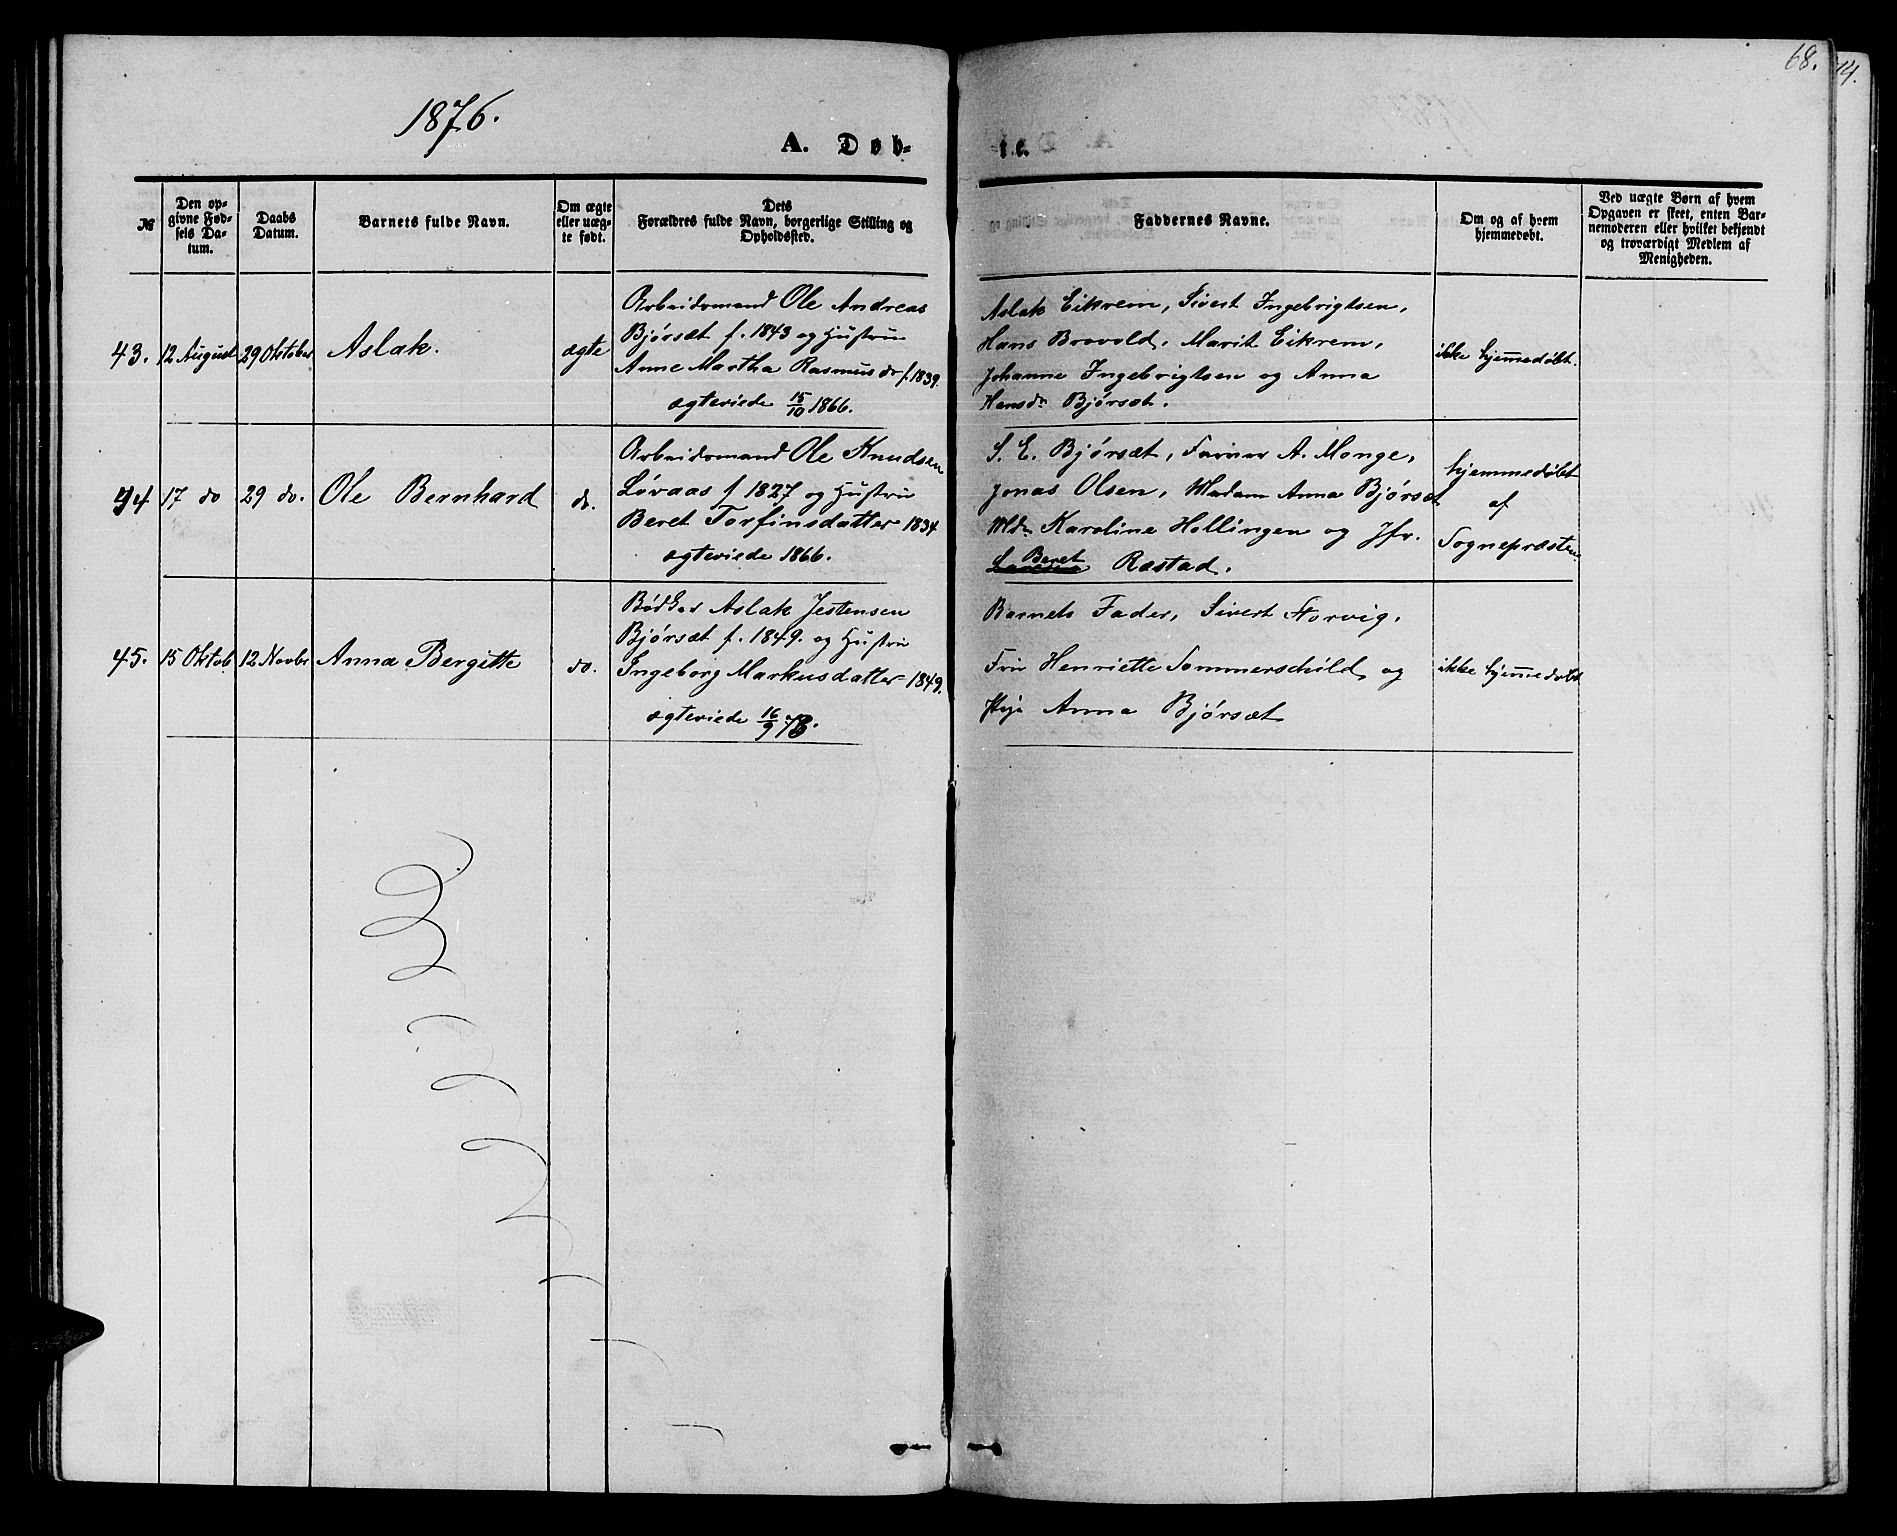 68.
14.
1876.
A. Døb-
te.
№
Den op-
givne Fød-
sels Da-
tum.
Daabs
Datum.
Barnets fulde Navn.
Om ægte
eller uæg-
te født.
Dets
Forældres fulde Navn, borgerlige Stilling og
Opholdssted.
Faddernes Navne.
Om og af hvem
hjemmedøbt.
Ved uægte Børn af hvem
Opgaven er skeet, enten Bar-
nemoderen eller hvilket bekjendt
og troværdigt Medlem af
Menigheden.
43. 12 August 29 Oktober Aslak. ægte
Arbeidsmand Ole Andreas
Bjørsæt f. 1843 og Hustru
Anne Martha Rasmusdr f. 1839.
ægteviede 15/10 1866.
Aslak Eikrem, Sivert Ingebrigtsen,
Hans Brovold, Marit Eikrem,
Johanne Ingebrigtsen og Anna
Hansdr Bjørsæt.
ikke hjemmedøbt.
44 17 do 29 do. Ole Bernhard do.
Arbeidsmand Ole Knudsen
Løvaas f 1827 og Hustru
Beret Torfinsdatter 1834
ægteviede 1866.
S. E. Bjørsæt, Farver A. Monge,
Jonas Olsen, Madam Anna Bjørsæt
Mdm Karoline Hollingen og Jfr.
Beret Røstad.
hjemmedøbt
af
Sognepræsten
45. 15 Oktob 12 Novbr Anna Bergitte do.
Bødker Aslak Jestensen
Bjørsæt f. 1849. og Hustru
Ingeborg Markusdatter 1849.
ægteviede 16/9
Barnets Fader, Sivert Norvig,
Fru Henriette Sommerschild og
Pige Anna Bjørsæt
ikke hjemmedøbt